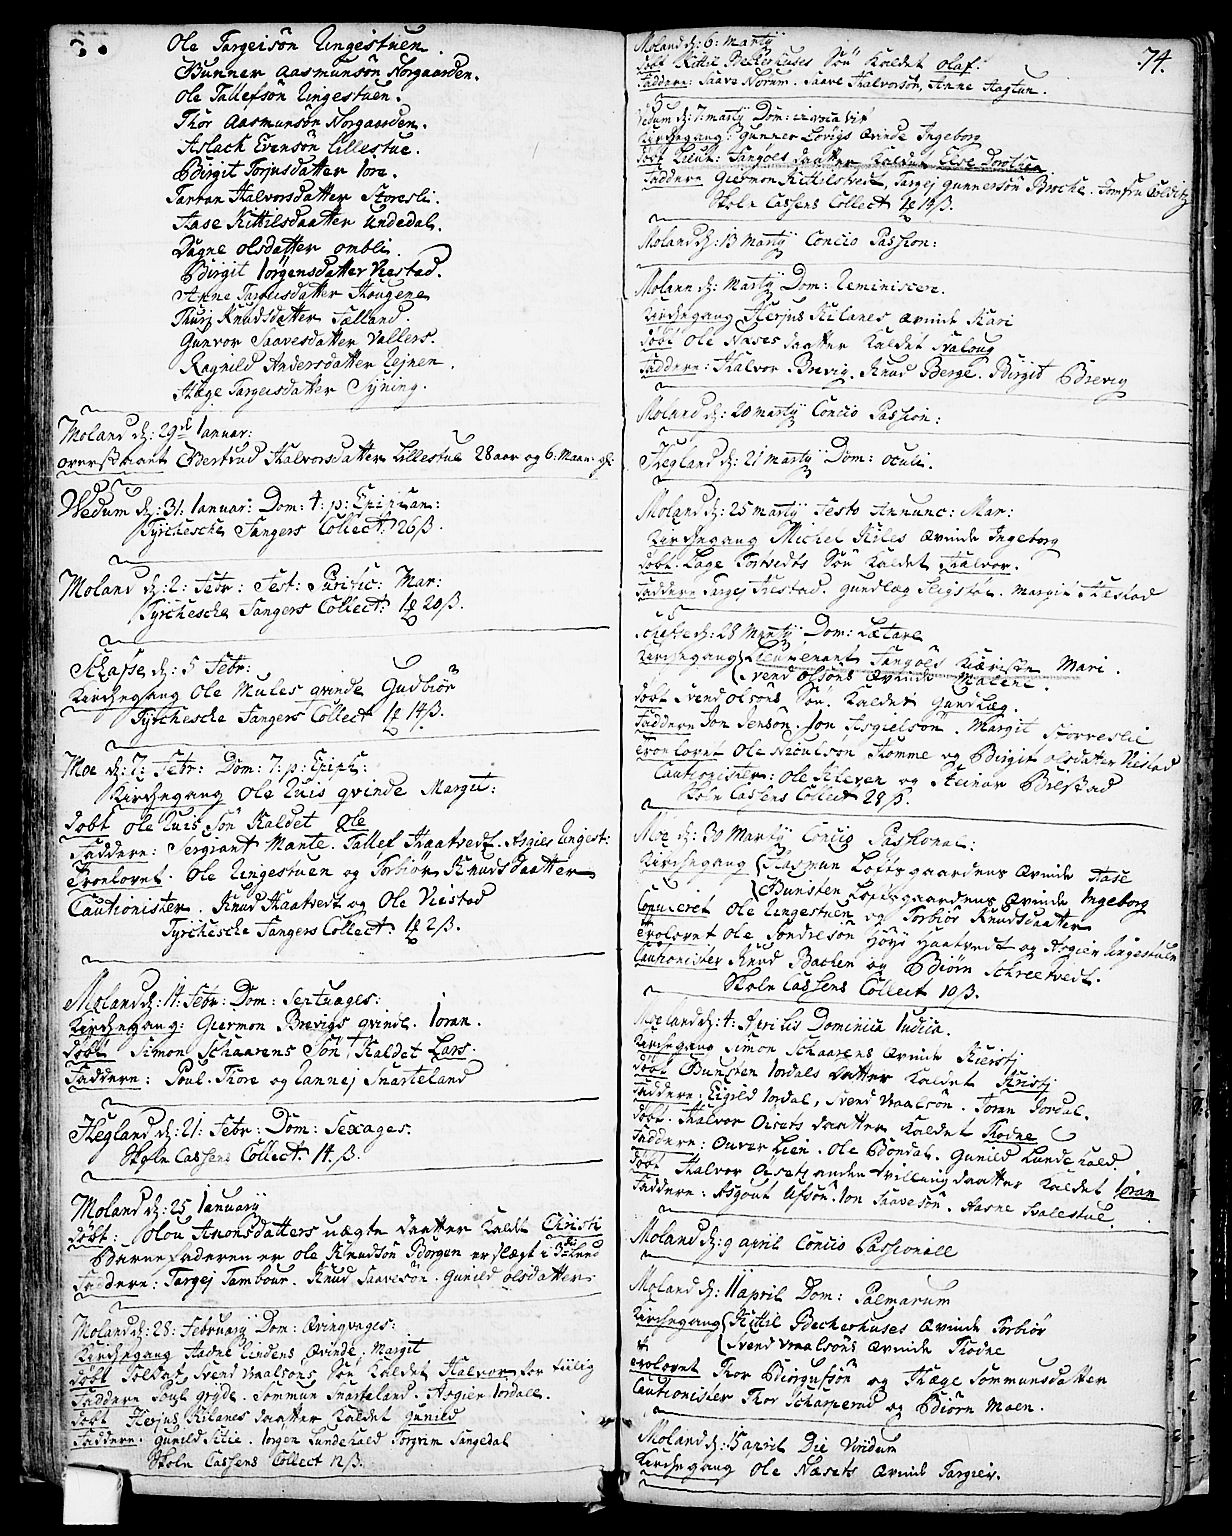 Ole Targeisön Ungestuen.
Gunner Aasmunsön Norgaarden.
Ole Tallefsön Ungestuen.
Thor Aasmunsön Norgaarden.
Aslach Evensön Lillestue.
Birgit Torjusdatter Iore.
Tarran Halvorsdatter Storesli.
Aase Kittilsdaatter Undedal.
Dagne Olsdatter Ombli.
Birgit Iörgensdatter Viestad.
Anne Targeisdatter Haugene
Thuri Knudsdatter Sælland.
Gunvor Saavesdatter Vallers.
Ragnild Andersdatter
Hæge Targeisdatter Syning.
Moland d: 29de Ianuar:
Bertrud Halvorsdatter Lillestue 28 aar og 6: Maan: gl:
Vedum d: 31 Ianuar: Dom: 4: p: Epiphan:
Tyrchesche Fangers Collect: 26 β.
Moland d: 2: Febr: Fest: Purific: Mar:
Tyrchesche Fangers Collect: 1 20 β.
Schafse d: 5 Febr:
Kirchegang Ole Mules qvinde Gudbiör
Tyrchesche Fangers Collect 1 14 β.
Moe d: 7: Febr: Dom: 7: p: Epiph:
Kirchegang Ole Uuis qvinde Margit:
döbt Ole Uuis Sön Kaldet Ole
Faddere: Sergiant Mante. Tallef Haatvedt. Asgier Ungest:
Trolovet. Ole Ungestuen og Torbiör Knudsdaatter
Cautionister. Knud Haatvedt og Ole Viestad
Tyrchesche Fangers Collect: 1 2 β.
Moland d: 14: Febr: Dom: Septuages:
Kirchegang: Giermon Brevigs qvinde. Ioran.
döbt Simon Schaarens Sön Kaldet Lars:
Faddere: Poul. Thore og Tannej Snarteland
Hegland d: 21: Febr: Dom: Sexages.
Skole Cassens Collect: 14. β.
Moland d: 25 Ianuarij
döbt: Olou Anonsdatters uægte daatter Kaldt Christi
Barnefaderen er Ole Knudsön Borgen er slægt i 3die Leed
Faddere: Targej Tambour. Knud Saavesön. Gunild Olsdatter.
Moland d: 28: Februarij Dom: Qvinqvages:
Kirchegang Aadne Lindens Qvinde. Margit
döbt Soldat Svend Vraalsöns Sön Kaldet Halvor for tiilig
Faddere Poul gryde. Sommun Snarteland. Asgier Iordale.
döbt Herjus Kilanes daatter Kaldet Gunild
Faddere. Gunild Silie. Iörgen Lundekald Torgrim Sangedal
Skole Cassens Collect 12 β.
74.
Moland d: 6: Martij
döbt Kittil Beckerhuses Sön Kaldet Olaf.
Faddere: Saave Norum. Saave Halvorsön, Anne Aagtun.
Vedum d: 7: Martij Dom: invocavit
Kirchegang: Gunner Lovigs Qvinde Ingeborg
döbt Lieut: Fangöes daatter Kaldet Else Dorthea
Faddere Giermon Kittilstvedt, Targej Gunnersön Broche. Iomfru Colditz
Skole Cassens Collect 1 14 β.
Moland d: 13 Martij Concio Passion:
Moland d: Martij Dom: Reminiscere.
Kirchegang Herjus Kilanes Qvinde Kari
döbt Ole Nases daatter Kaldet Svaloug
Faddere: Halvor Brevig. Knud Berge. Birgit Brevig
Moland d: 20 Martij Concio Passion:
Hegland d: 21 Martij Dom: Oculi.
Moland d: 25 Martij Festo Annunc: Mar:
Kirchegang Michel Kiles Qvinde Ingeborg
döbt. Lage Tortvedts Sön Kaldet Halvor.
Faddere Targej Trestad. Gundlæg Sligstöl. Margit Thestad
Schafse d: 28 Martij Dom: Lætare
Kirchegang Lieutenant Fangöes Kiæriste Mari.
Svend Olsöns Qvinde Malene.
döbt Svend Olsöns Sön. Kaldet Gundlæg.
Faddere Jon Jensön. Jon Asgielsön. Margit Storreslie
Trolovet Ole Nicoulsön Homme og Birgit Olsdatter Viestad
Cautionister: Ole Kleven og Steinar Brestad
Skole Cassens Collect 28 β.
Moe d: 30 Martij Concio Passional:
Kirchegang Aasmun Lofts gaardens Qvinde Aase
Bunsten Loftsgaardens Qvinde Ingeborg
Copuleret Ole Ungestuen og Torbiör Knudsdaatter
Trolovet Ole Sondresön Höys Haatvedt og Asgier Ungestuen
Cautionister Knud Bachen og Biörn Schreetvedt.
Skole Cassens Collect 10 β.
Moeland d: 4: Aprilis Dominica Iudica.
Kirchegang Simon Schaarens Qvinde Kierstj
döbt Bunsten Iordals datter Kaldet Christj
Faddere: Eigild Iordal, Svend Vraalsön. Joran Jordal.
döbt. Halvor Oisets daatter Kaldet Thodne
Faddere: Ouver Lien. Ole Bondal. Gunild Lundekald.
döbt Halvor Oisets anden tvilling daatter Kaldet Ioran
Faddere: Asgout Ulfsön. Ion Saavesön. Aasne Valestul.
Moland d: 9 April Concio Passionall
Moland d: 11 April Dom: Palmarum
Kirchegang Kittil Beckerhuses Qvinde Torbiör
Svend Vraalsöns Qvinde Thodne
Trolovet Thor Biörgufsön og Hæge Sommunsdatter
Cautionister Thor Scharperud og Biörn Moen.
Moland d: 15 April Die Viridum
Kirchegang Ole Næsets Qvinde Targier.